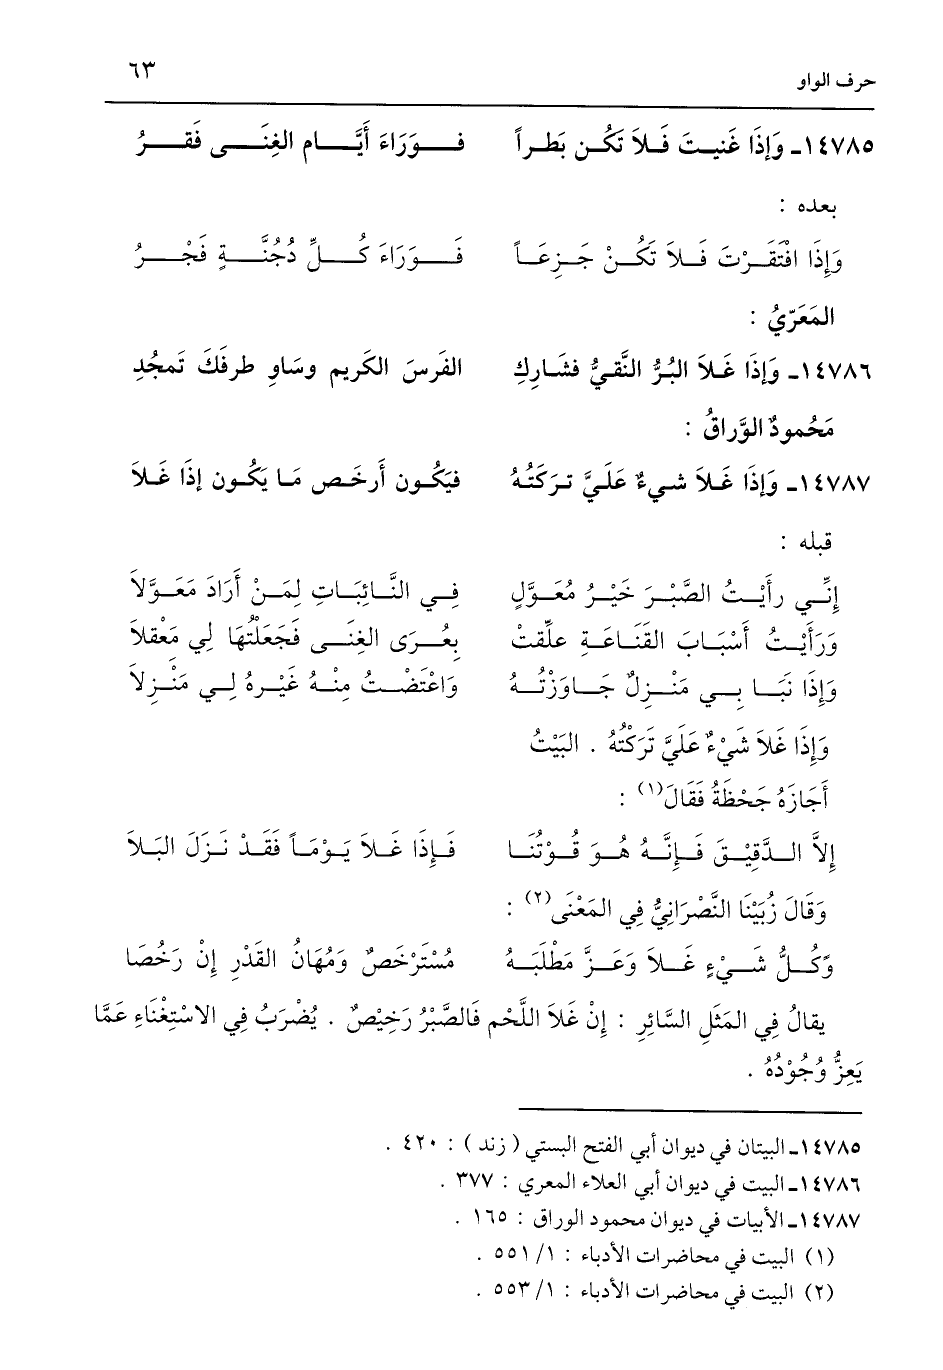 حرف الواو ٦٣
١٤٧٨٥ـ وَإذَا غَنيتَ فَلاَ تَكُن بَطراً فَوَرَاءَ أَيَّامِ الغِنَى فَقرُ
بعده :
وَإِذَا افْتَقَرْتَ فَلاَ تَكُنْ جَزِعَاً فَوَرَاءَ كُلِّ دُجُنَّةٍ فَجْرُ
المَعَرّيُ :
١٤٧٨٦ـ وَإذَا غَلاَ البُرُّ النَّقيُّ فشَارِكِ الفَرسَ الكَريم وسَاوِ طرفَكَ تَمجُدِ
مَحُمودُ الوَّراقُ :
١٤٧٨٧ـ وَإذَا غَلاَ شَيءٌ عَلَيَّ تركَتُهُ فيَكُون أرخَص مَا يَكُون إذَا غَلاَ
قبله :
إنِّي رأَيْتُ الصَّبْرَ خَيْرُ مُعَوَّلٍ فِي النَّائِبَاتِ لِمَنْ أَرَادَ مَعَوَّلاَ
وَرَأَيْتُ أَسْبَابَ القَنَاعَةِ علِّقتْ بِعُرَى الغِنَى فَجَعَلْتُهَا لِي مَعْقلاَ
وَإذَا نَبَا بِي مَنْزِلٌ جَاوَزْتُهُ وَاعْتَضْتُ مِنْهُ غَيْرهُ لِي مَنْزِلاَ
وَإِذَا غَلاَ شَيْءٌ عَلَيَّ تَرَكْتُهُ . البَيْتُ
أَجَازَهُ جَحْظَةُ فَقَالَ(١) :
إلاَّ الدَّقِيْقَ فَإِنَّهُ هُوَ قُوْتُنَا فَإِذَا غَلاَ يَوْمَاً فَقَدْ نَزَلَ البَلاَ
وَقَالَ زُبَيْنَا النَّصْرَانِيُّ فِي المَعْنَى(٢) :
وَكُلُّ شَيْءٍ غَلاَ وَعَزَّ مَطْلَبَهُ مُسْتَرْخَصٌ وَمُهَانُ القَدْرِ إنْ رَخُصَا
يقالُ فِي المَثَلِ السَّائِرِ : إنْ غَلاَ اللَّحْمِ فَالصَّبْرُ رَخِيْصٌ . يُضْرَبُ فِي الاسْتِغْنَاءِ عَمَّا
يَعِزُّ وُجُوْدُهُ .
١٤٧٨٥ـ البيتان في ديوان أبي الفتح البستي ( زند ) : ٤٢٠ .
١٤٧٨٦ـ البيت في ديوان أبي العلاء المعري : ٣٧٧ .
١٤٧٨٧ـ الأبيات في ديوان محمود الوراق : ١٦٥ .
(١) البيت في محاضرات الأدباء : ١/ ٥٥١ .
(٢) البيت في محاضرات الأدباء : ١/ ٥٥٣ .